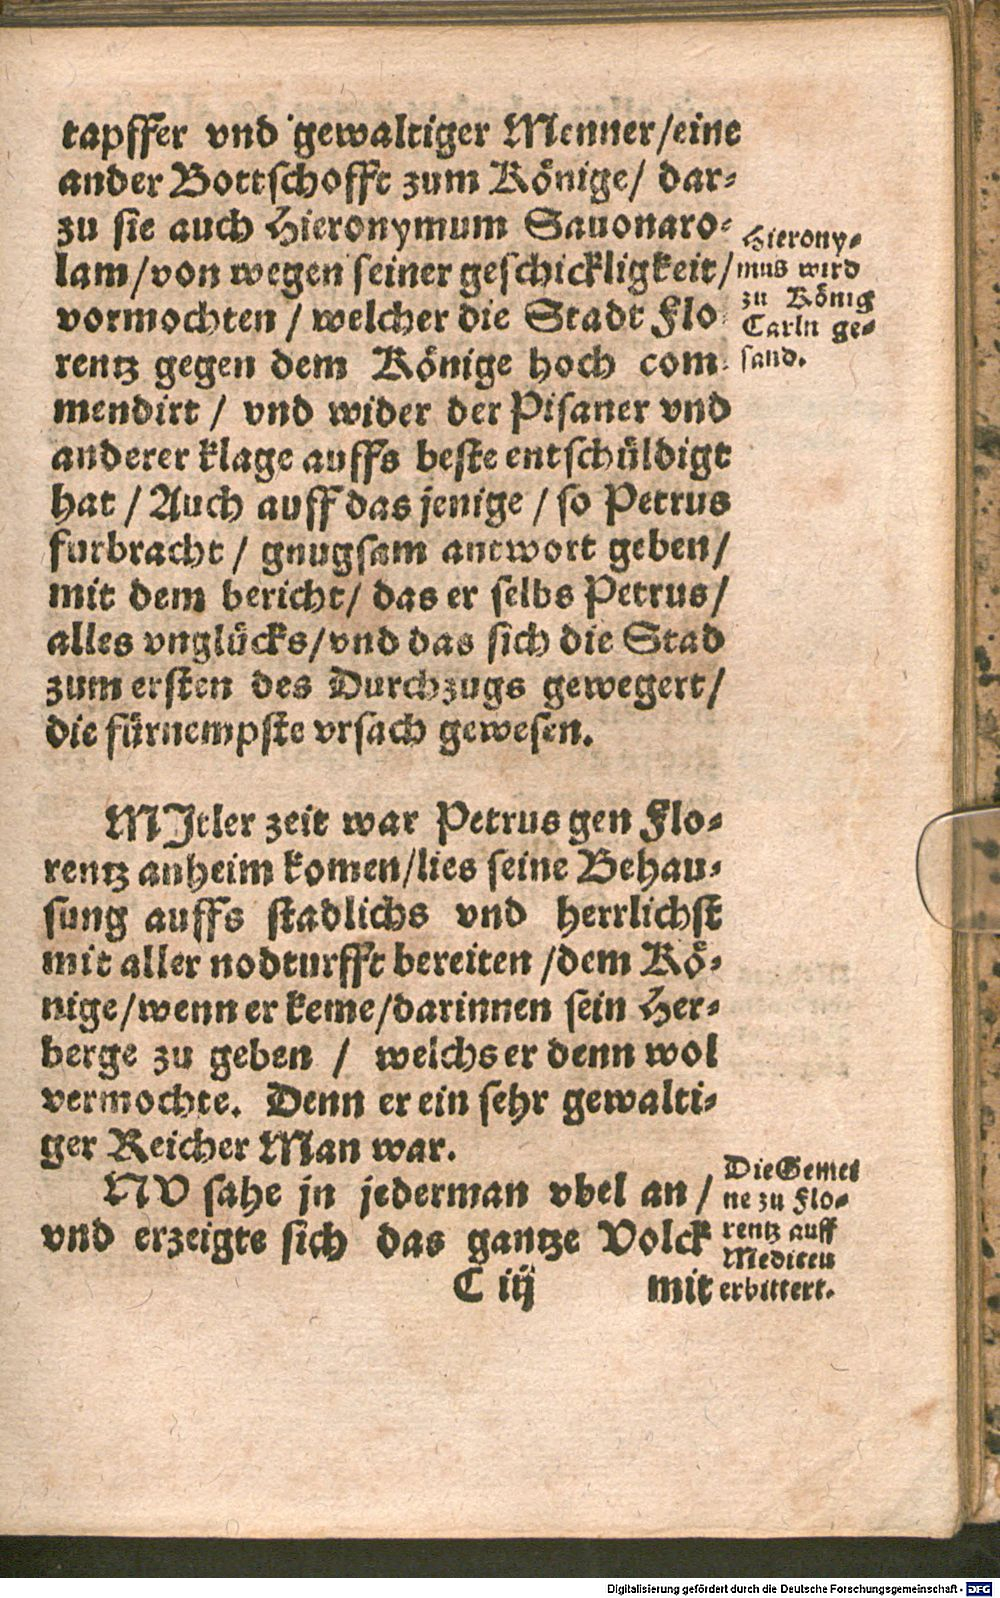 tapffer vnd gewaltiger Menner/eine
ander Bottschofft zum Könige/ dar-
zu sie auch Hieronymum Sauonaro-
lam/von wegen seiner geschickligkeit/
vormochten / welcher die Stadt Flo
rentz gegen dem Könige hoch com-
mendirt / vnd wider der Pisaner vnd
anderer klage auffs beste entschüldigt
hat / Auch auff das jenige / so Petrus
furbracht / gnugsam antwort geben/
mit dem bericht/ das er selbs Petrus/
alles vnglücks/vnd das sich die Stad
zum ersten des Durchzugs gewegert/
die fürnempste vrsach gewesen.
Hierony-
mus wird
zu König
Carln ge-
sand.
MJtler zeit war Petrus gen Flo-
rentz anheim komen/lies seine Behau-
sung auffs stadlichs vnd herrlichst
mit aller nodturfft bereiten /dem Kö-
nige/wenn er keme/darinnen sein Her-
berge zu geben / welchs er denn wol
vermochte. Denn er ein sehr gewalti-
ger Reicher Man war.
NV sahe jn jederman vbel an /
vnd erzeigte sich das gantze Volck
Die Gemei
ne zu Flo-
rentz auff
Mediceu
erbittert.
C iij mit
Digitalisierung gefördert durch die Deutsche Forschungsgemeinschaft - DFG